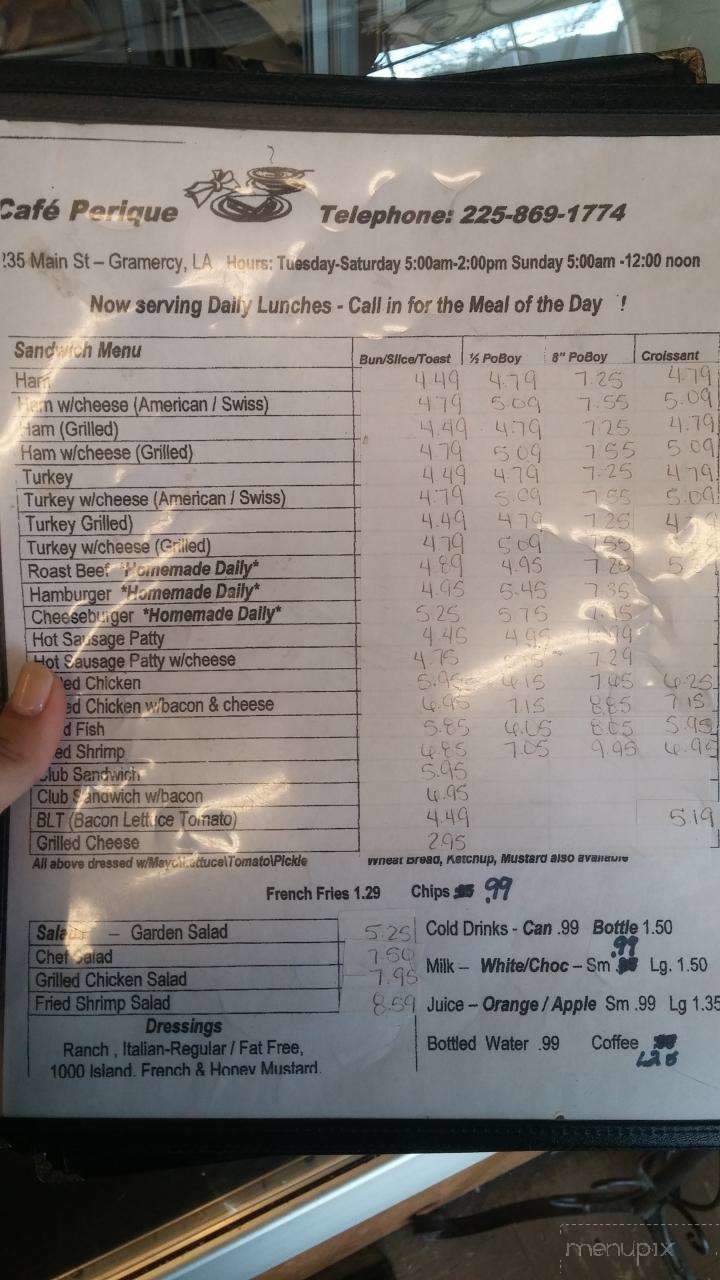 Café Perique Telephone: 225-869-1774
35 Main St – Gramercy, LA Hours: Tuesday-Saturday 5:00am-2:00pm Sunday 5:00am -12:00 noon
Now serving Daily Lunches - Call in for the Meal of the Day !
Sandwich Menu Bun/Slice/Toast ½ PoBoy 8" PoBoy Croissant
Ham 4.49 4.79 7.25 4.79
Ham w/cheese (American / Swiss) 4.79 5.09 7.55 5.09
Ham (Grilled) 4.49 4.79 7.25 4.79
Ham w/cheese (Grilled) 4.79 5.09 7.55 5.09
Turkey 4.49 4.79 7.25 4.79
Turkey w/cheese (American / Swiss) 4.79 5.09 7.55 5.09
Turkey Grilled) 4.49 4.79 7.25
Turkey w/cheese (Grilled) 4.79 5.09 7.55
Roast Beef *Homemade Daily* 4.89 4.95
Hamburger *Homemade Daily* 4.95 5.45 7.35
Cheeseburger *Homemade Daily* 5.25 5.75
Hot Sausage Patty 4.45 4.95
Hot Sausage Patty w/cheese 4.75 7.29
ed Chicken 5.95 6.15 7.45 6.25
ed Chicken w/bacon & cheese 6.95 7.15 8.85 7.15
d Fish 5.85 6.05 8.05 5.95
ed Shrimp 6.85 7.05 9.95 6.95
Club Sandwich 5.95
Club Sandwich w/bacon 6.95
BLT (Bacon Lettuce Tomato) 4.49 5.19
Grilled Cheese 2.95
All above dressed w/Mayo\Lettuce\Tomato\Pickle Wheat Bread, Ketchup, Mustard also available
French Fries 1.29 Chips .99
Salads – Garden Salad 5.25
Chef Salad 7.50
Grilled Chicken Salad 7.95
Fried Shrimp Salad 8.59
Dressings
Ranch , Italian-Regular / Fat Free,
1000 Island, French & Honey Mustard.
Cold Drinks - Can .99 Bottle 1.50
Milk – White/Choc – Sm .99 Lg. 1.50
Juice – Orange / Apple Sm .99 Lg 1.35
Bottled Water .99 Coffee
menupix